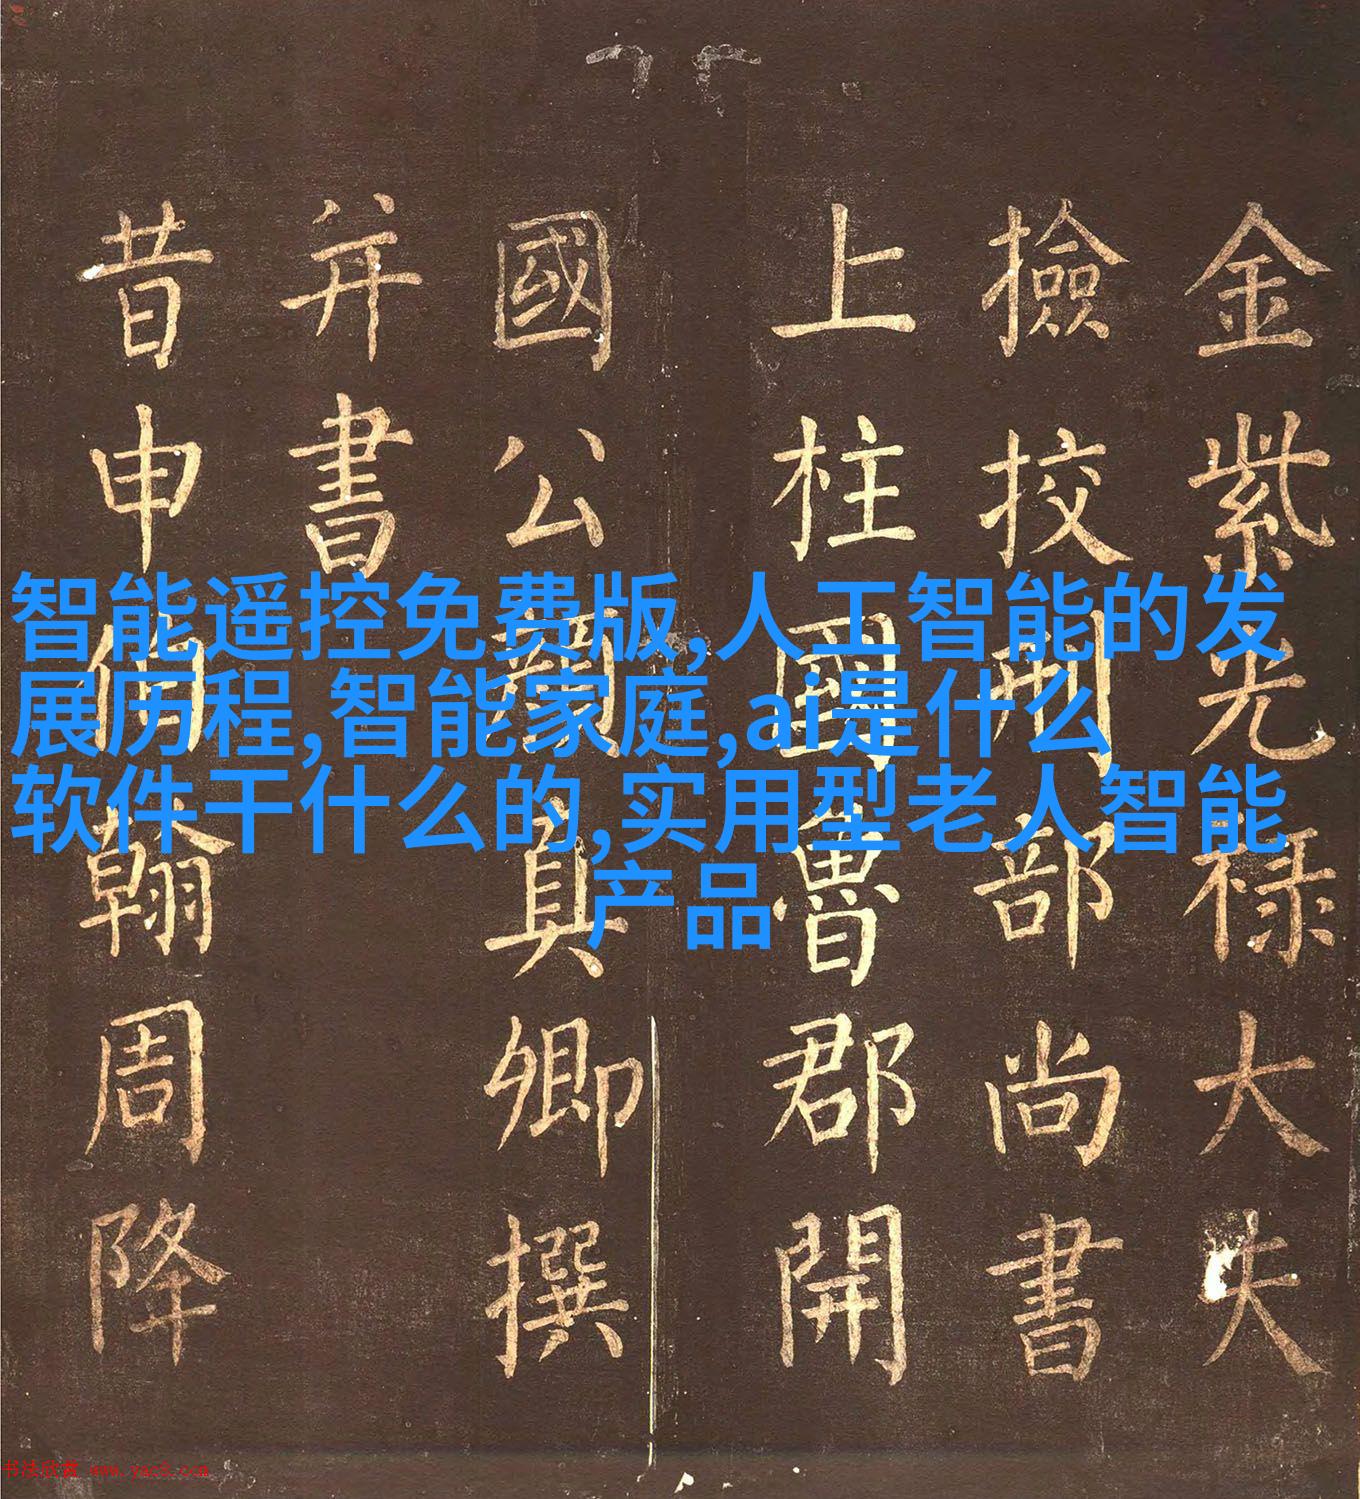 金紫光禄大夫
撿挍刑部尚書
上柱國魯郡開
國公顏真卿撰
并書
昔申伯翰周降
智能遥控免费版,人工智能的发
展历程,智能家庭,ai是什么
软件干什么的,实用型老人智能
产品
书法欣赏 www.yac8.com